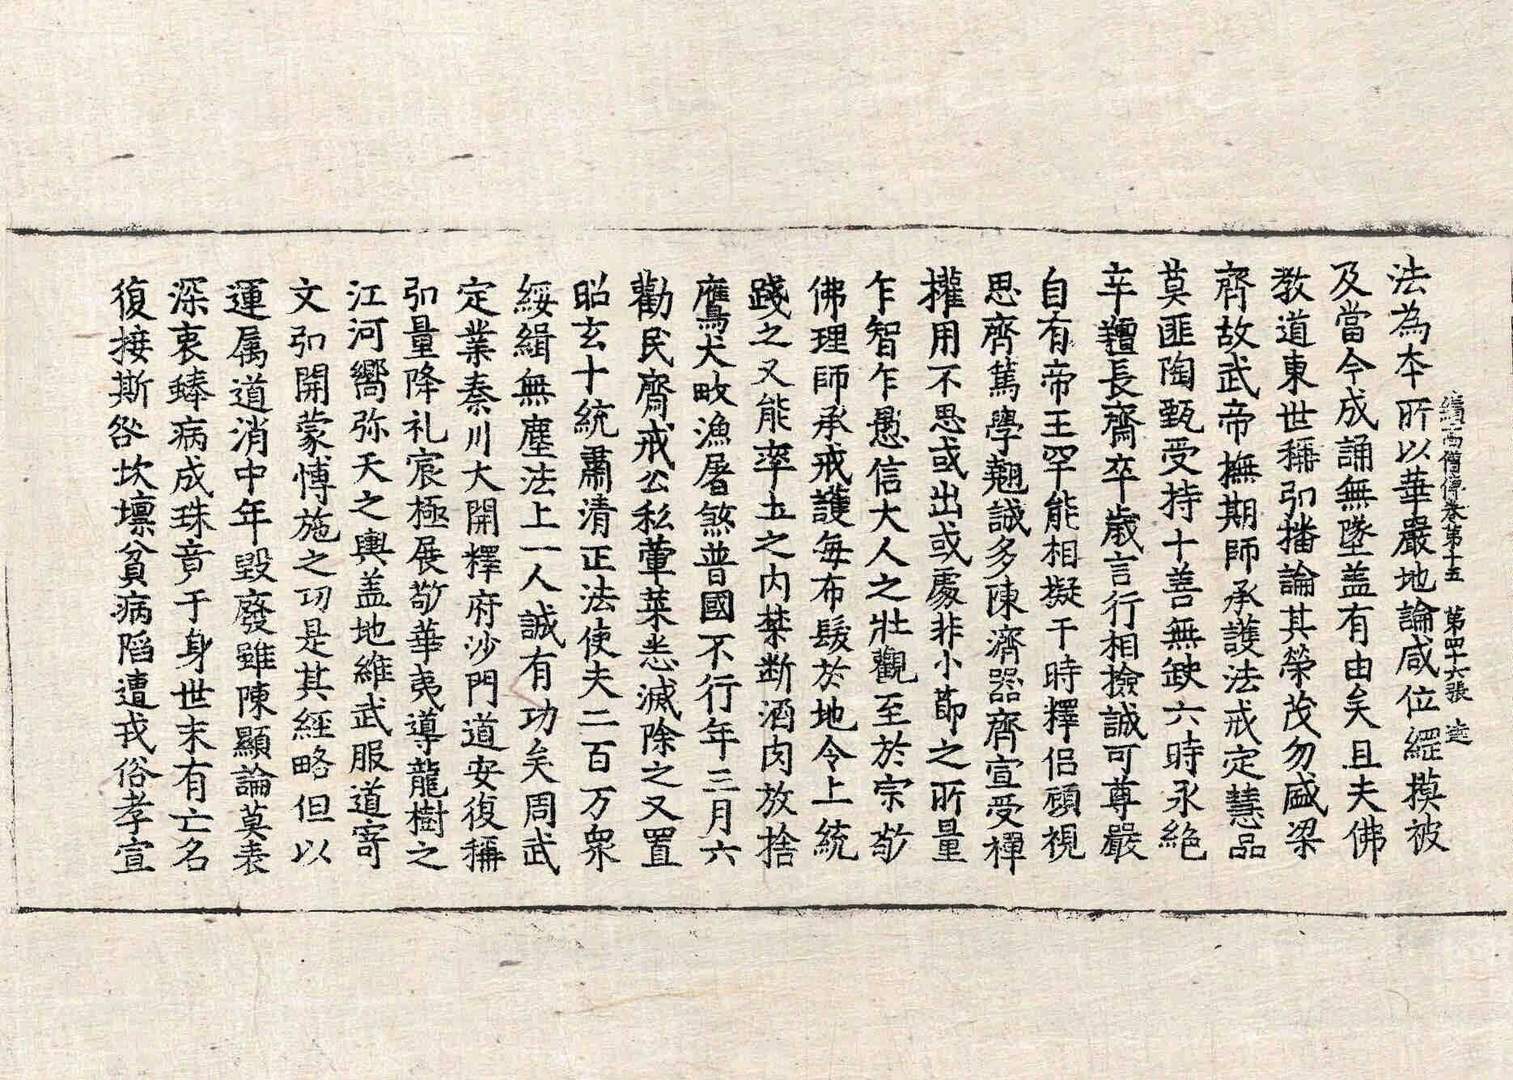 續高僧傳卷第十五 第四十六張 達
法為本所以華嚴地論咸位綱摸被
及當今成誦無墜盖有由矣且夫佛
教道東世稱弘播論其榮茂勿盛梁
齊故武帝撫期師承護法戒定慧品
莫匪陶甄受持十善無缺六時永絶
辛羶長齋卒歲言行相撿誠可尊嚴
自有帝王罕能相擬于時釋侣頎視
思齊篤學翹誠多陳濟器齊宣受禪
權用不思或出或處非小節之所量
乍智乍愚信大人之壯觀至於宗敬
佛理師承戒護每布髮於地令上統
踐之又能率土之内禁断酒肉放捨
鷹犬畋漁屠煞普國不行年三月六
勸民齋戒公私葷菜悉滅除之又置
昭玄十統肅清正法使夫二百万衆
綏緝無塵法上一人誠有功矣周武
定業秦川大開釋府沙門道安復稱
弘量降礼宸極展敬華夷導龍樹之
江河嚮弥天之輿盖地維武服道寄
文弘開蒙愽施之功是其經略但以
運属道消中年毀廢雖陳顯論莫表
深衷蜯病成珠竟于身世末有亡名
復接斯咎坎壈貧病陷遭戎俗孝宣